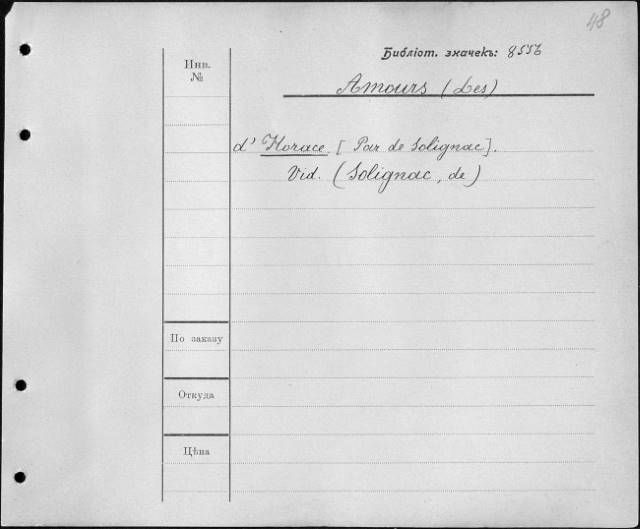 48
Библіот. значекъ: 8556
Инв.
№
Amours (Les)
d' Horace. [Par de Solignac].
Vid. (Solignac, de)
По заказу
Откуда
Цѣна